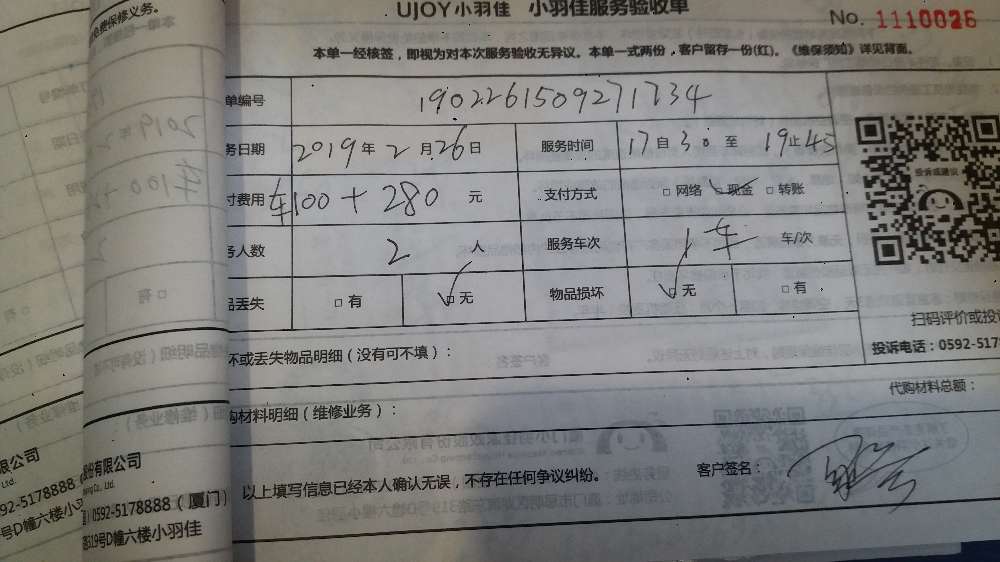 UJOY小羽佳 小羽佳服务验收单
No. 1110026
本单一经核签，即视为对本次服务验收无异议。本单一式两份，客户留存一份(红)。《维保须知》详见背面。
单编号 1902261509271734
务日期 2019年2月26日 服务时间 17自30至19止45
付费用 车100+280元 支付方式 □网络 □现金 □转账
务人数 2人 服务车次 1车 车/次
品丢失 □有 □无 物品损坏 □无 □有
投诉或建议
扫码评价或投诉
投诉电话：0592-5178
坏或丢失物品明细（没有可不填）：
代购材料总额：
购材料明细（维修业务）：
以上填写信息已经本人确认无误，不存在任何争议纠纷。
客户签名：
免费保修义务。
股份有限公司
0592-5178888（厦门）
319号D幢六楼小羽佳
限公司
Ltd.
592-5178888
号D幢六楼小